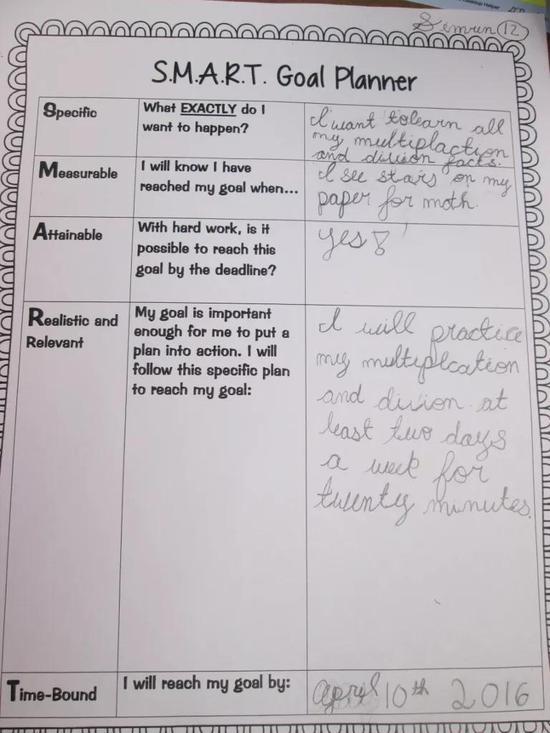 Simrun 12
S.M.A.R.T. Goal Planner
Specific
What EXACTLY do I
want to happen?
I want to learn all
my multiplaction
and division facts.
Measurable
I will know I have
reached my goal when...
I see stars on my
paper for math.
Attainable
With hard work, is it
possible to reach this
goal by the deadline?
yes!
Realistic and
Relevant
My goal is important
enough for me to put a
plan into action. I will
follow this specific plan
to reach my goal:
I will practice
my multiplcation
and divison at
least two days
a week for
twenty minutes.
Time-Bound
I will reach my goal by:
april 10th 2016